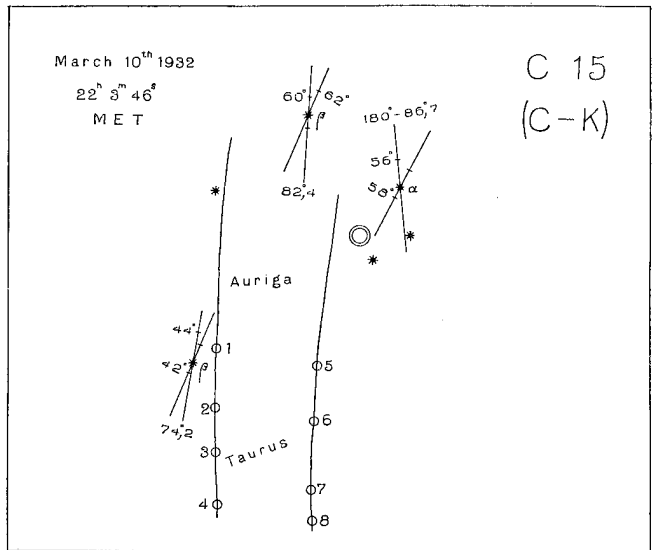 March 10th 1932
22h 3m 46s
MET
C 15
(C–K)
60°
62°
β
82°,4
180°–86°,7
56°
58°
α
Auriga
44°
42°
β
74°,2
1
2
3
4
Taurus
5
6
7
8